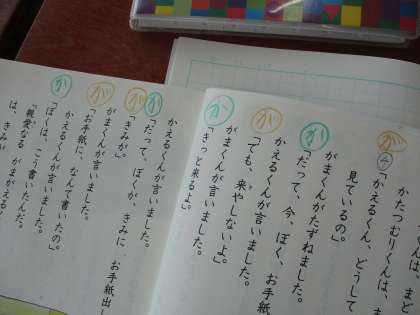 くんは、まど
かたつむりくんは、ま
が
「かえるくん、どうして
見ているの。」
がまくんがたずねました。
か
「だって、今、ぼく、お手紙
かえるくんが言いました。
が
「でも、来やしないよ。」
がまくんが言いました。
か
「きっと来るよ。」
かえるくんが言いました。
か
「だって、ぼくが、きみに お手紙出し
が
「きみが。」
がまくんが言いました。
が
「お手紙に、なんて書いたの。」
かえるくんが言いました。
か
「ぼくは、こう書いたんだ。
『親愛なる がまがえるく
は、きみが